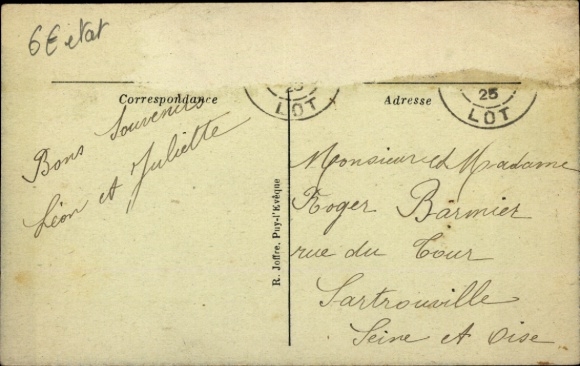 6€ état
Correspondance
Adresse
25
LOT
25
LOT
Bons Souvenirs
Léon et Juliette
R. Joffre, Puy-l'Evêque
Monsieur et Madame
Roger Barmier
rue du Tour
Sartrouville
Seine et Oise